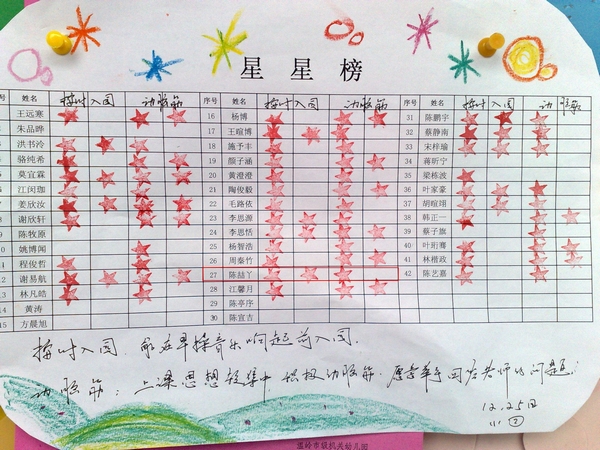 星星榜
号 姓名 按时入园 动脑筋 序号 姓名 按时入园 动脑筋 序号 姓名 按时入园 动脑筋
王远寒 16 杨博 31 陈鹏宇
朱品晔 17 王暄博 32 蔡静南
洪书泠 18 施予丰 33 宋梓瑜
骆纯希 19 颜子涵 34 蒋昕宁
莫宜霖 20 黄澄澄 35 梁栋波
江闵珈 21 陶俊毅 36 叶家豪
姜欣汝 22 毛路依 37 胡暄翊
谢欣轩 23 李思源 38 韩正一
陈牧原 24 李思恬 39 蔡子旗
10 姚博闻 25 杨智浩 40 叶珩骞
11 程俊哲 26 周泰竹 41 林楷政
12 谢易航 27 陈喆丫 42 陈艺嘉
13 林凡皓 28 江馨月
14 黄涛 29 陈亭序
15 方晨旭 30 陈宣吉
按时入园：能在早操音乐响起前入园.
动脑筋：上课思想较集中,积极动脑筋.愿意举手回答老师的问题.
12.25日
小②
温岭市级机关幼儿园